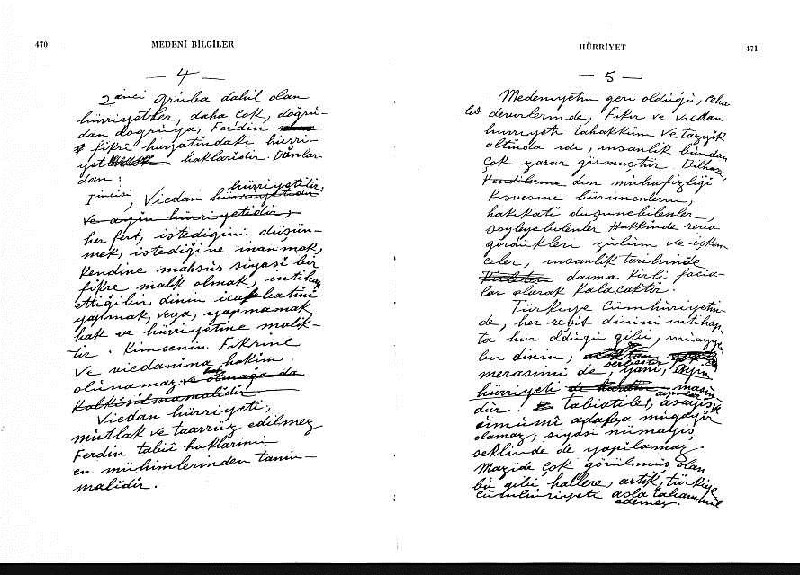 470
MEDENİ BİLGİLER
— 4 —
2inci gruba dahil olan
hürriyetler, daha çok, doğru-
dan doğruya, Ferdin
fikrî hayatındaki hürri-
yet haklarıdır. Bunlar-
dan:
Birincisi, Vicdan hürriyetidir,
ve ayin hürriyetidir,
her fert, istediğini düşün-
mek, istediğine inanmak,
kendine mahsus siyasî bir
fikre malik olmak, intihap
ettiği bir dinin icabatını
yapmak, veya, yapmamak
hak ve hürriyetine malik-
tir. Kimsenin fikrine
ve vicdanına hakim
olunamaz.
Vicdan hürriyeti,
mutlak ve taarruz edilmez
Ferdin tabiî haklarının
en mühimlerinden tanın-
malıdır.
HÜRRİYET
471
— 5 —
Medeniyetin geri olduğu, Ceha-
let devirlerinde, Fikir ve vicdan
hürriyeti tahakküm ve tazyik
altında idi, insanlık bundan
çok zarar görmüştür. Bilhassa
din muhafızlığı
kisvesine bürünenlerin,
hakikati düşünebilenler,
söyleyebilenler hakkında reva
gördükleri zulüm ve işken-
celer, insanlık tarihinde
daima kirli facia-
lar olarak kalacaktır.
Türkiye Cümhuriyetin-
de, her reşit dinini intihap-
ta hür olduğu gibi, muayyen
bir dinin,
merasimi de serbesttir, yani, ayin
hürriyeti masun-
dur. Tabiatile, ayinler asayiş
umumî adaba mugayir
olamaz; siyasî nümayiş
şeklinde de yapılamaz.
Mazide çok görülmüş olan
bu gibi hallere, artık, Türkiye
Cümhuriyeti asla tahammül
edemez.